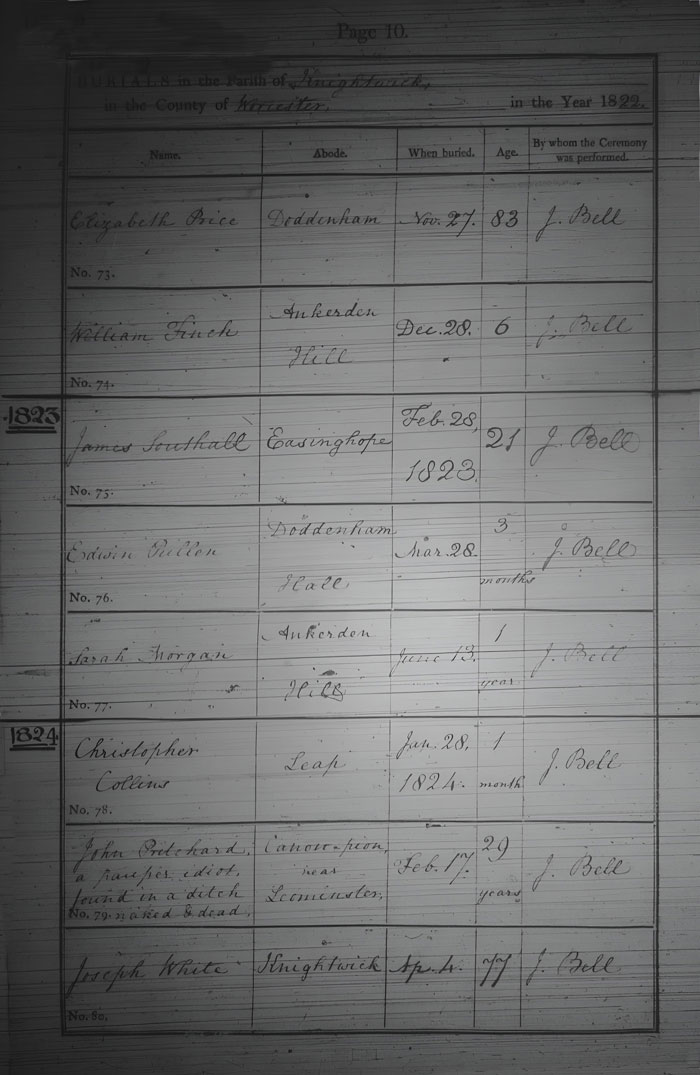 Page 10.
BURIALS in the Parish of Knightwick,
in the County of Worcester, in the Year 1822.
Name. Abode. When buried. Age. By whom the Ceremony was performed.
Elizabeth Price Doddenham Nov. 27. 83 J. Bell
No. 73.
William Finch Ankerden Hill Dec. 28. 6 J. Bell
No. 74.
1823
James Southall Easinghope Feb. 28, 1823. 21 J. Bell
No. 75.
Edwin Doddenham Hall Mar. 28. 3 months J. Bell
No. 76.
Sarah Morgan Ankerden Hill June 13. 1 year J. Bell
No. 77.
1824
Christopher Collins Leap Jan. 28, 1824. 1 month J. Bell
No. 78.
John Pritchard, Feb. 17. 29 years J. Bell
a pauper idiot, near
found in a ditch Leominster,
No. 79. naked & dead.
Joseph White Knightwick Ap. 4. 77 J. Bell
No. 80.